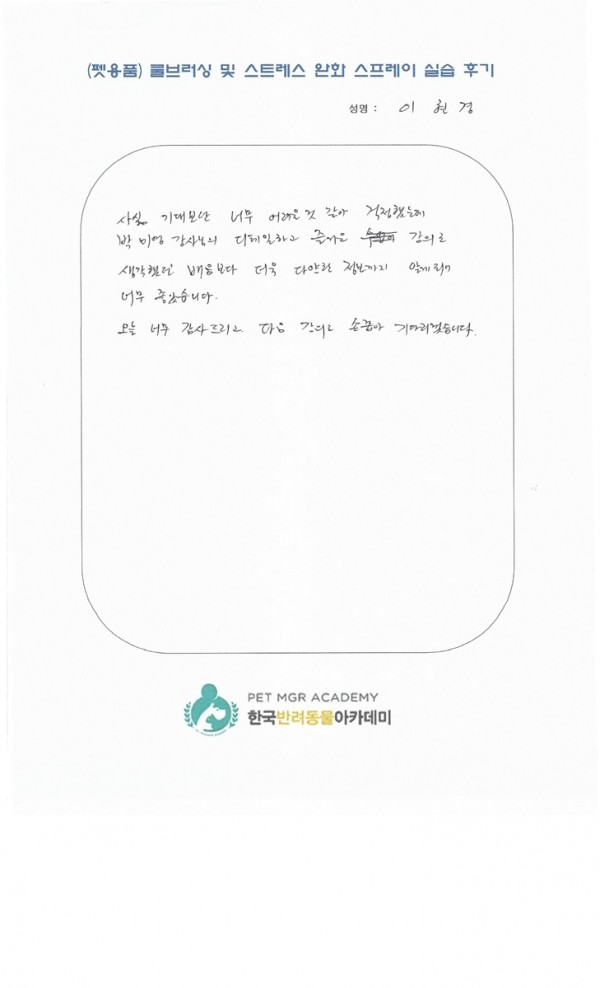 (펫용품) 룰브러싱 및 스트레스 완화 스프레이 실습 후기
성명 : 이 현 경
사실 기대보단 너무 어려울것 같아 걱정했는데
박미영 강사님의 디테일하고 즐거운 강의로
생각했던 배움보다 더욱 다양한 정보까지 알게되어
너무 좋았습니다.
오늘 너무 감사드리고 다음 강의도 손꼽아 기다리겠습니다.
PET MGR ACADEMY
한국반려동물아카데미